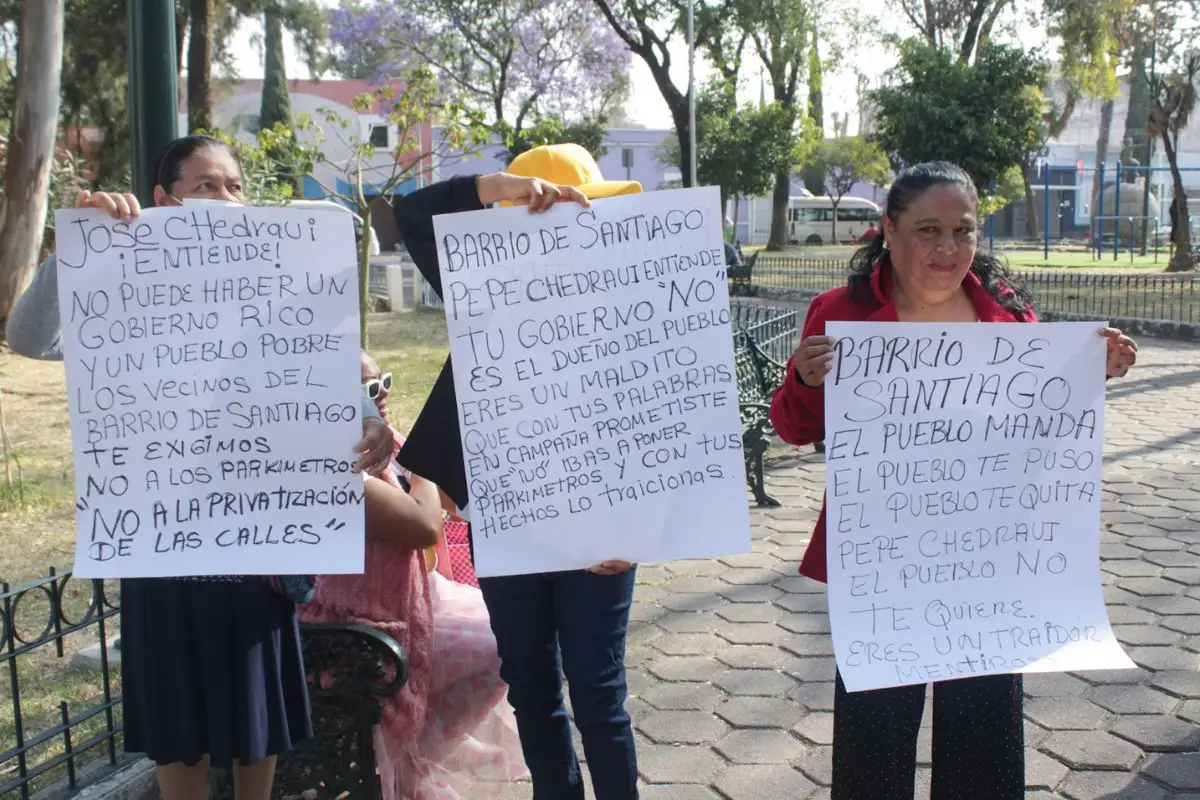 JOSE CHEDRAUI
¡ENTIENDE!
NO PUEDE HABER UN
GOBIERNO RICO
Y UN PUEBLO POBRE
LOS VECINOS DEL
BARRIO DE SANTIAGO
TE EXIGIMOS
NO A LOS PARKIMETROS
"NO A LA PRIVATIZACIÓN
DE LAS CALLES"
BARRIO DE SANTIAGO
PEPE CHEDRAUI ENTIENDE
TU GOBIERNO "NO"
ES EL DUEÑO DEL PUEBLO
ERES UN MALDITO
QUE CON TUS PALABRAS
EN CAMPAÑA PROMETISTE
QUE "NO" IBAS A PONER
PARKIMETROS Y CON TUS
HECHOS LO TRAICIONAS
BARRIO DE
SANTIAGO
EL PUEBLO MANDA
EL PUEBLO TE PUSO
EL PUEBLO TE QUITA
PEPE CHEDRAUI
EL PUEBLO NO
TE QUIERE.
ERES UN TRAIDOR
MENTIROSO